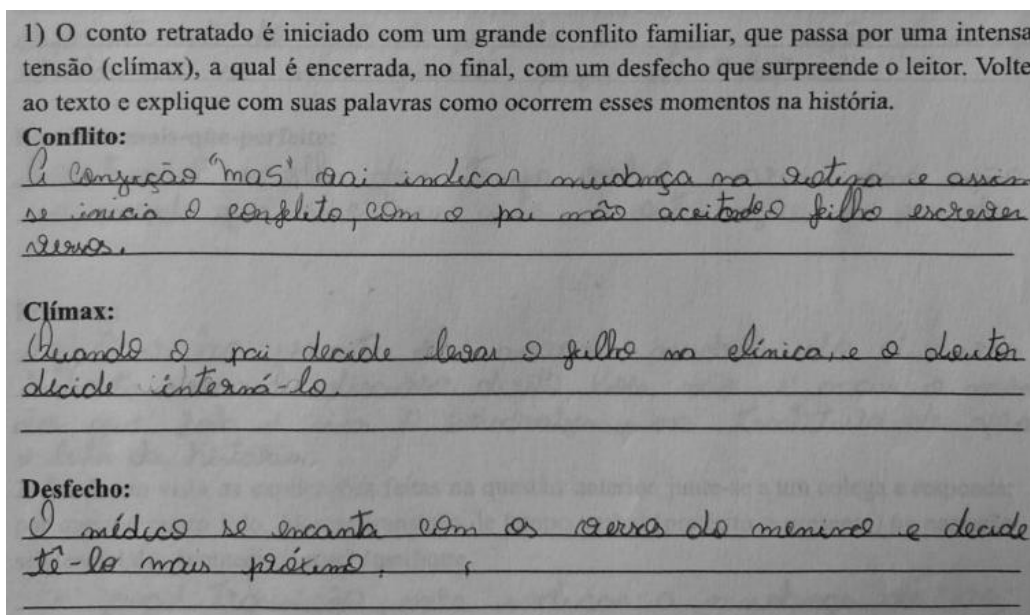 1) O conto retratado é iniciado com um grande conflito familiar, que passa por uma intensa
tensão (clímax), a qual é encerrada, no final, com um desfecho que surpreende o leitor. Volte
ao texto e explique com suas palavras como ocorrem esses momentos na história.
Conflito:
A conjução "mas" vai indicar mudança na rotina e assim
se inicia o conflito, com o pai não aceitado o filho escrever
versos.
Clímax:
Quando o pai decide levar o filho na clínica, e o doutor
decide interná-lo.
Desfecho:
O médico se encanta com os versos do menino e decide
tê-lo mais próximo.